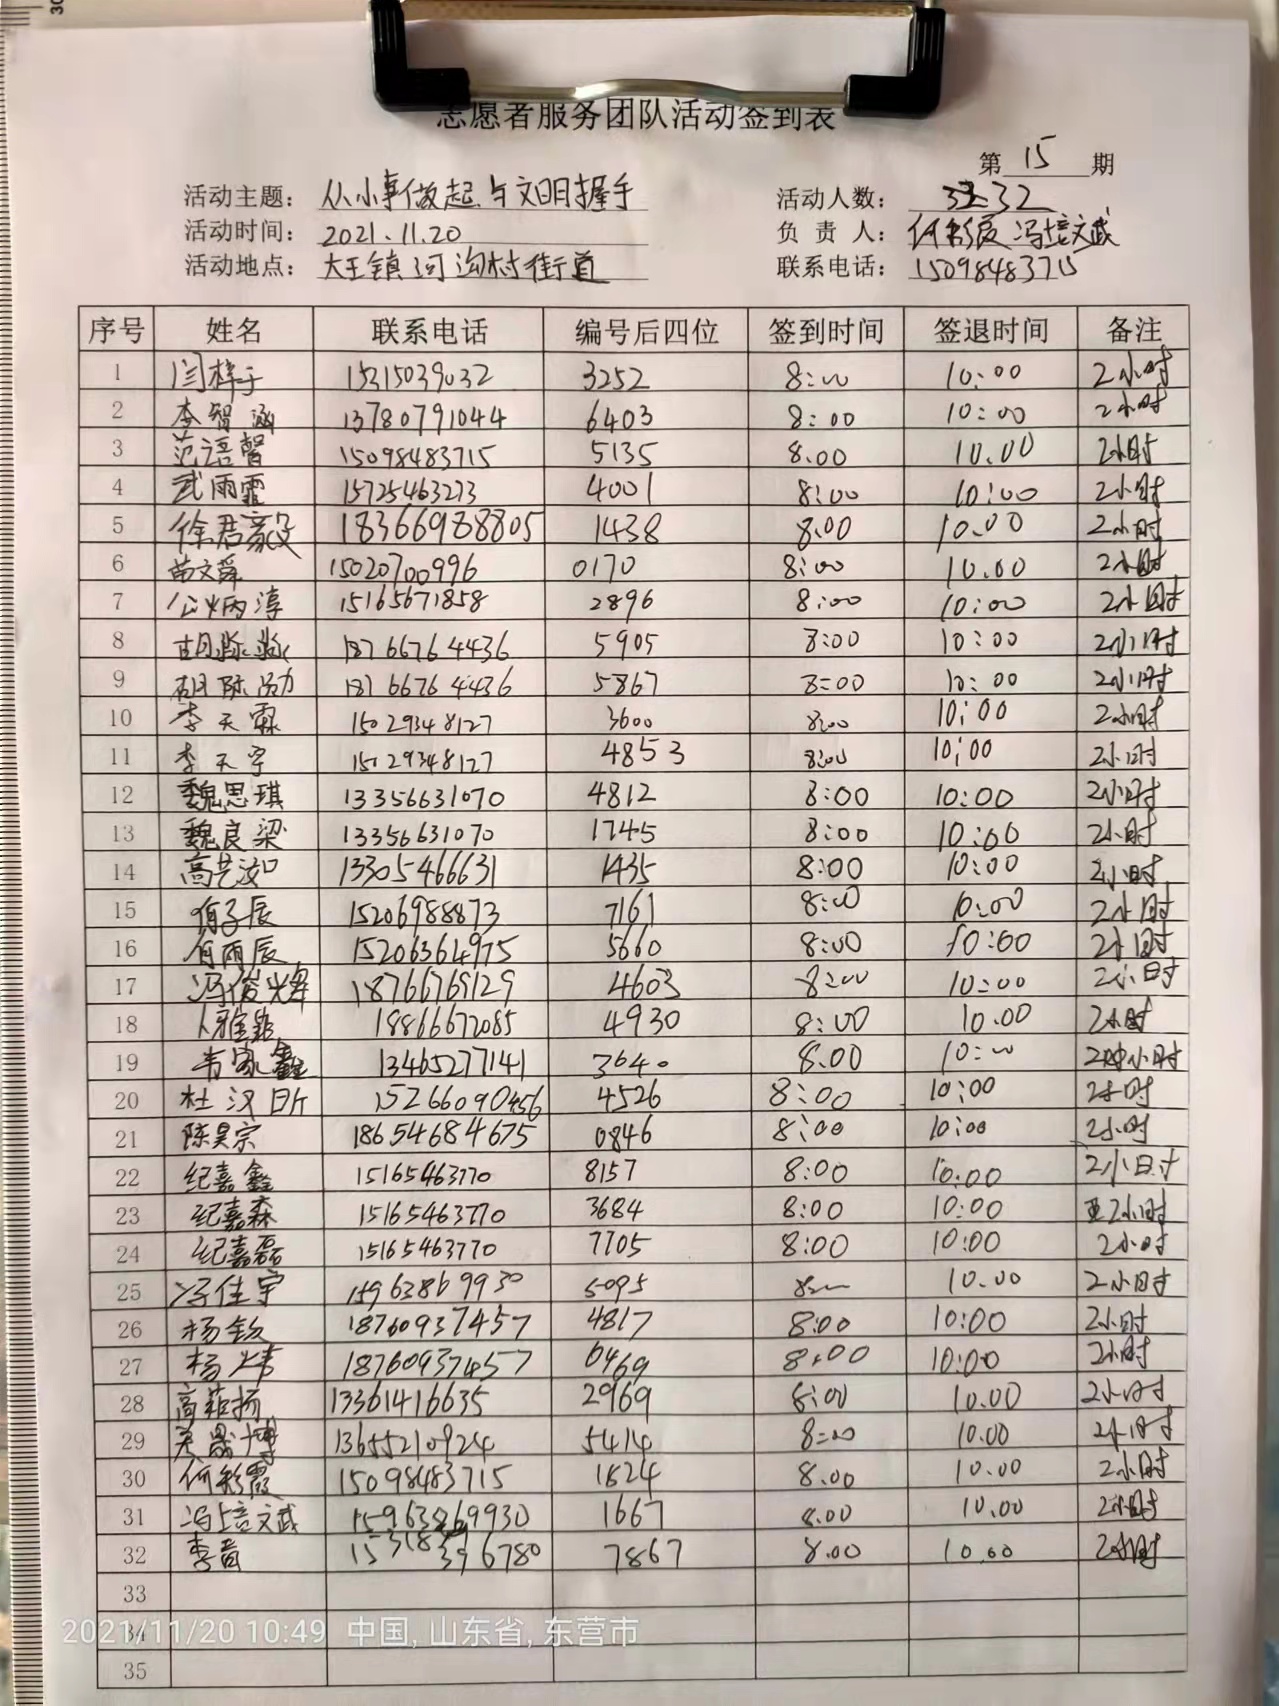 志愿者服务团队活动签到表
第 15 期
活动主题： 从小事做起与文明握手 活动人数： 32
活动时间： 2021.11.20 负 责 人： 何彩霞 冯培文武
活动地点： 大王镇河沟村街道 联系电话： 15098483715
序号 姓名 联系电话 编号后四位 签到时间 签退时间 备注
1 闫梓于 15315039032 3252 8:00 10:00 2小时
2 李智涵 13780791044 6403 8:00 10:00 2小时
3 范语馨 15098483715 5135 8.00 10.00 2小时
4 武雨霏 15725463273 4001 8:00 10:00 2小时
5 徐君毅 18366988805 1438 8.00 10.00 2小时
6 苗文舜 15020700996 0170 8:00 10.00 2小时
7 公炳淳 15165671858 2896 8:00 10:00 2小时
8 胡 18766764436 5905 8:00 10:00 2小时
9 胡际励 18766764436 5867 8:00 10:00 2小时
10 李天霖 15029348127 3600 8:00 10:00 2小时
11 李天宇 15029348127 4853 8:00 10:00 2小时
12 魏思琪 13356631070 4812 8:00 10:00 2小时
13 魏良梁 13356631070 1745 8:00 10:00 2小时
14 高艺洳 13305466631 1435 8:00 10:00 2小时
15 子辰 15206988873 7161 8:00 10:00 2小时
16 雨辰 15206364975 5660 8:00 10:00 2小时
17 冯俊烨 18766769129 4603 8:00 10:00 2小时
18 18866672085 4930 8:00 10.00 2小时
19 韦家鑫 13465277141 3640 8.00 10:00 2小时
20 杜汉昕 15266090456 4526 8:00 10:00 2小时
21 陈昊宗 18654684675 0846 8:00 10:00 2小时
22 纪嘉鑫 15165463770 8157 8:00 10:00 2小时
23 纪嘉森 15165463770 3684 8:00 10:00 2小时
24 纪嘉磊 15165463770 7705 8:00 10:00 2小时
25 冯佳宇 15963869930 5095 8:00 10.00 2小时
26 杨钦 18760937457 4817 8:00 10:00 2小时
27 杨炜 18760937457 0469 8.00 10:00 2小时
28 高菲扬 13361416635 2969 8:00 10.00 2小时
29 吴晟博 13655210924 5414 8:00 10.00 2小时
30 何彩霞 15098483715 1824 8.00 10.00 2小时
31 冯培文武 15963869930 1667 8.00 10.00 2小时
32 李音 7867 8.00 10.00 2小时
33
34
35
2021/11/20 10:49 中国, 山东省, 东营市